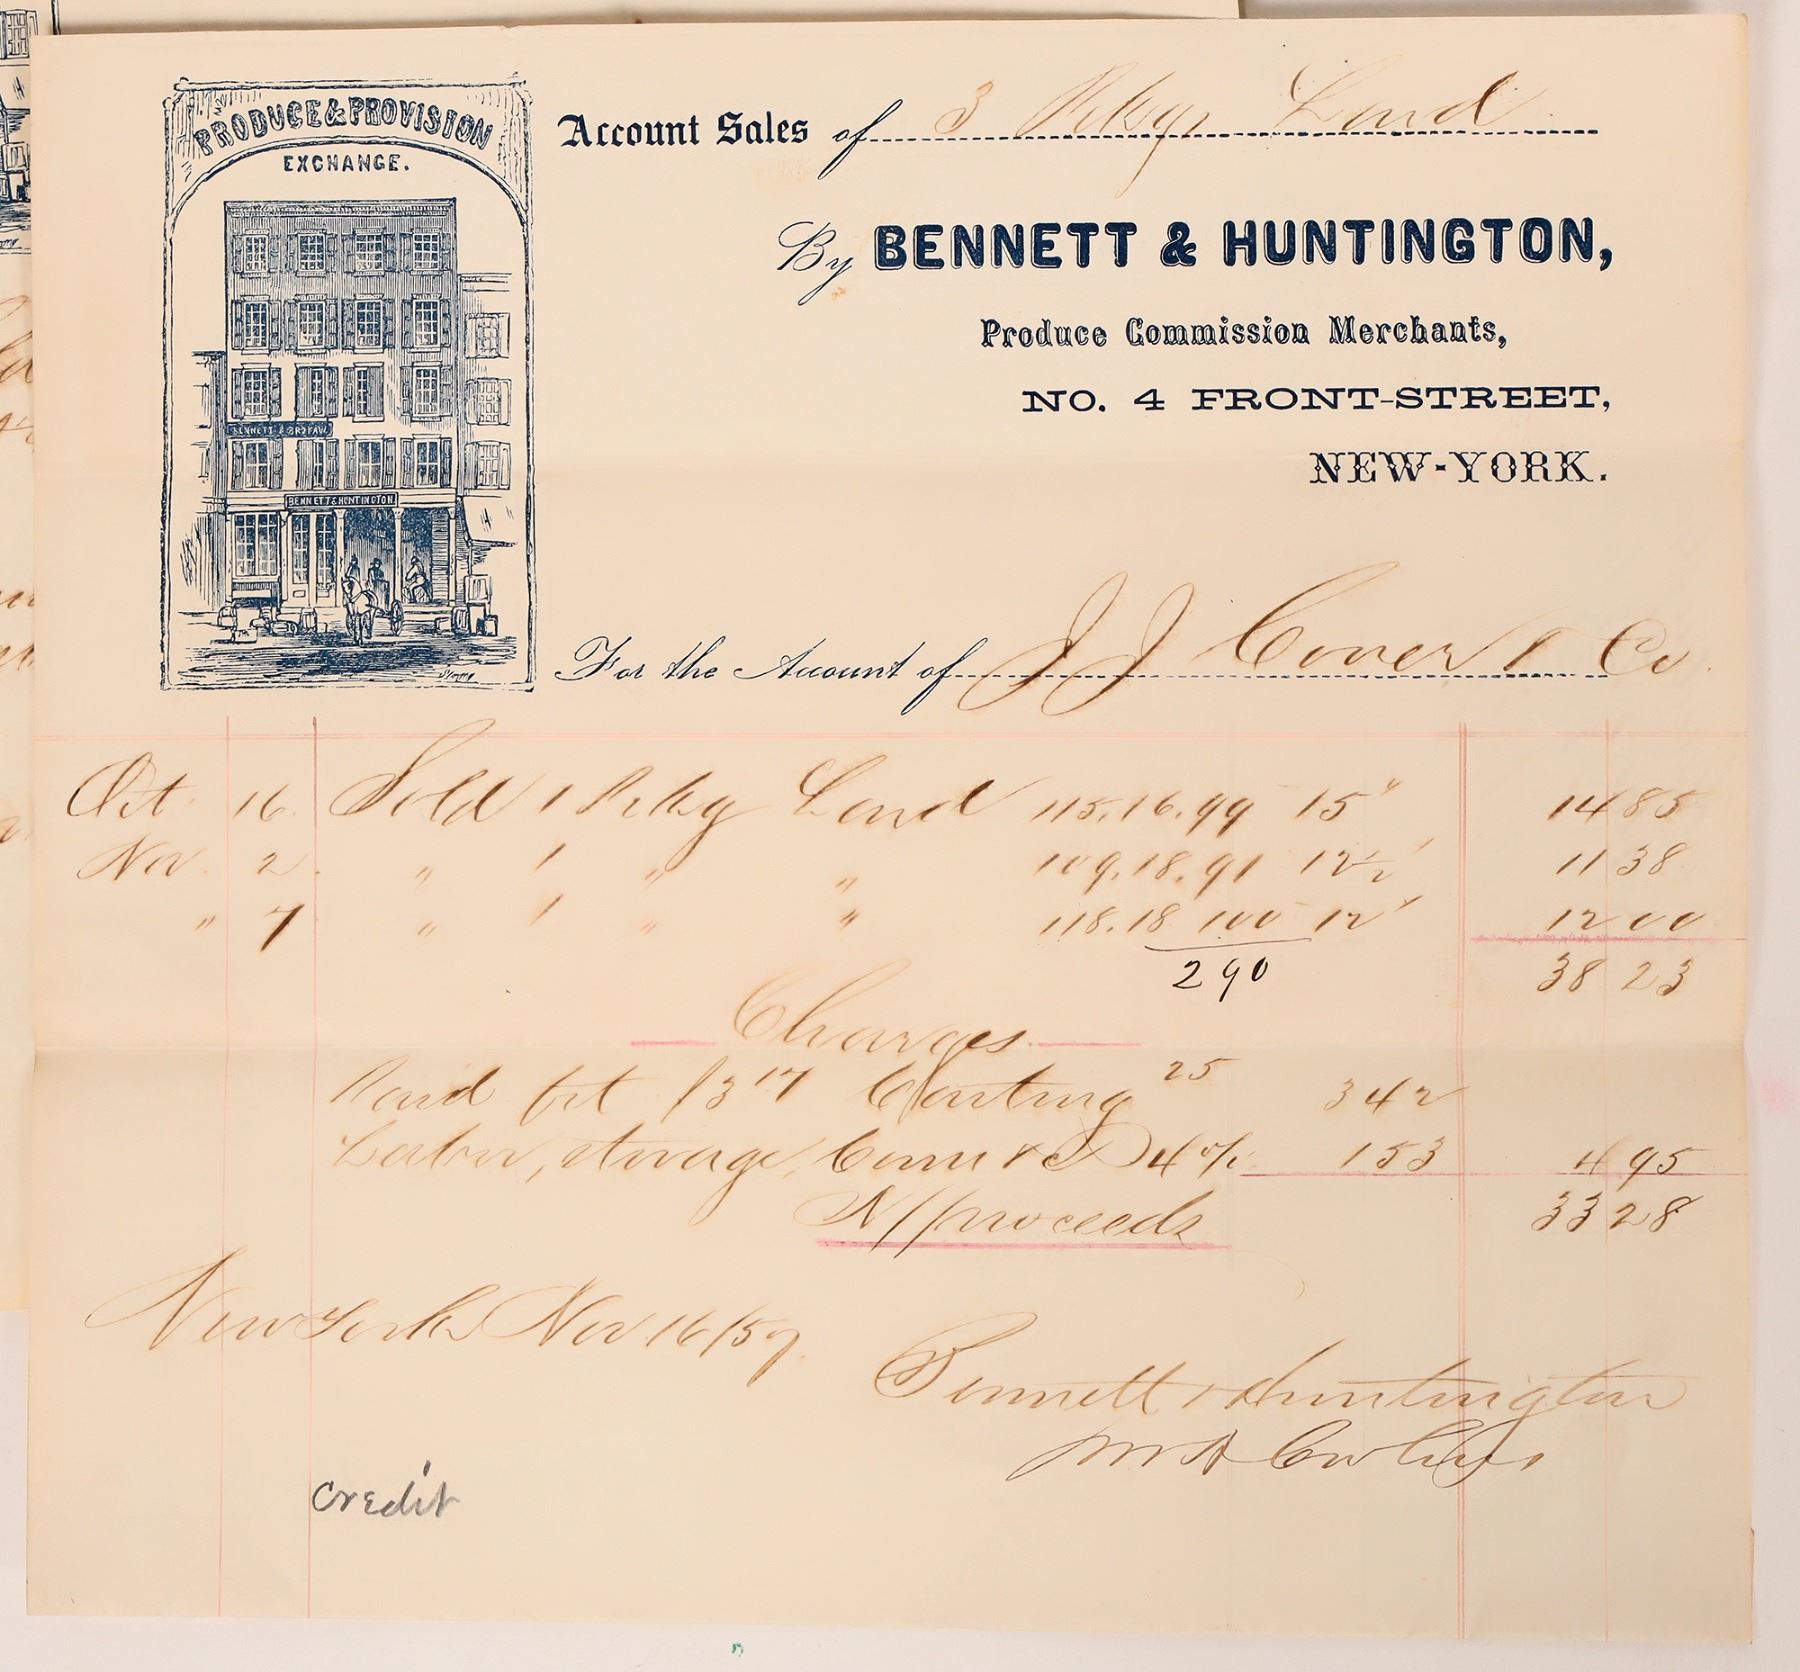 PRODUCE & PROVISION
EXCHANGE.
BENNETT & BROKAW.
BENNETT & HUNTINGTON.
Account Sales of 3 Pckgs Lard
By BENNETT & HUNTINGTON,
Produce Commission Merchants,
NO. 4 FRONT-STREET,
NEW-YORK.
For the Account of J J Cover & Co
Oct 16 Sold 1 Pckg Lard 115.16.99 15" 14 85
Nov. 2 " 1 " " 109.18.91 12½ 11 38
" 7 " 1 " " 118.18 100 12 12 00
290 38 23
Charges
Paid frt 3 17 Carting 25 3 42
Labor, storage, Comn & 4 % 1 53 4 95
N/proceeds 33 28
New York Nov 16/57
Bennett & Huntington
credit